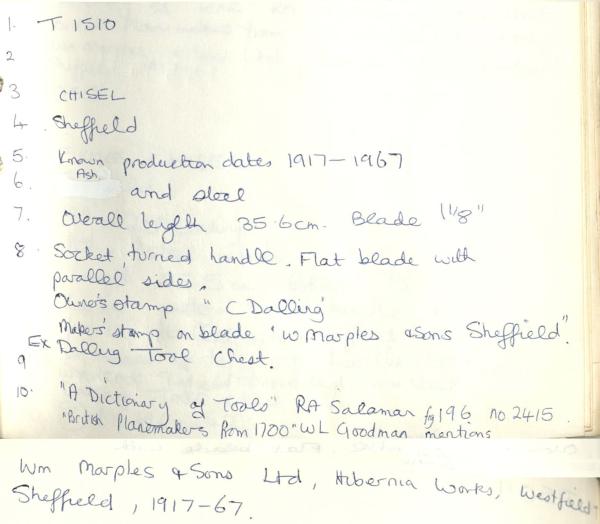 1. T 1510
2
3 CHISEL
4. Sheffield
5. Known production dates 1917-1967
6. Ash and steel
7. Overall length 35.6cm. Blade 1 1/8"
8. Socket, turned handle. Flat blade with
parallel sides.
Owner's stamp "C Dalling'
Maker's stamp on blade "W Marples & Sons Sheffield".
Ex Dalling Tool Chest.
9
10. "A Dictionary of Tools" RA Salaman fg 196 no 2415.
"British Planemakers from 1700" WL Goodman mentions
Wm Marples & Sons Ltd, Hibernia Works, Westfield
Sheffield, 1917-67.